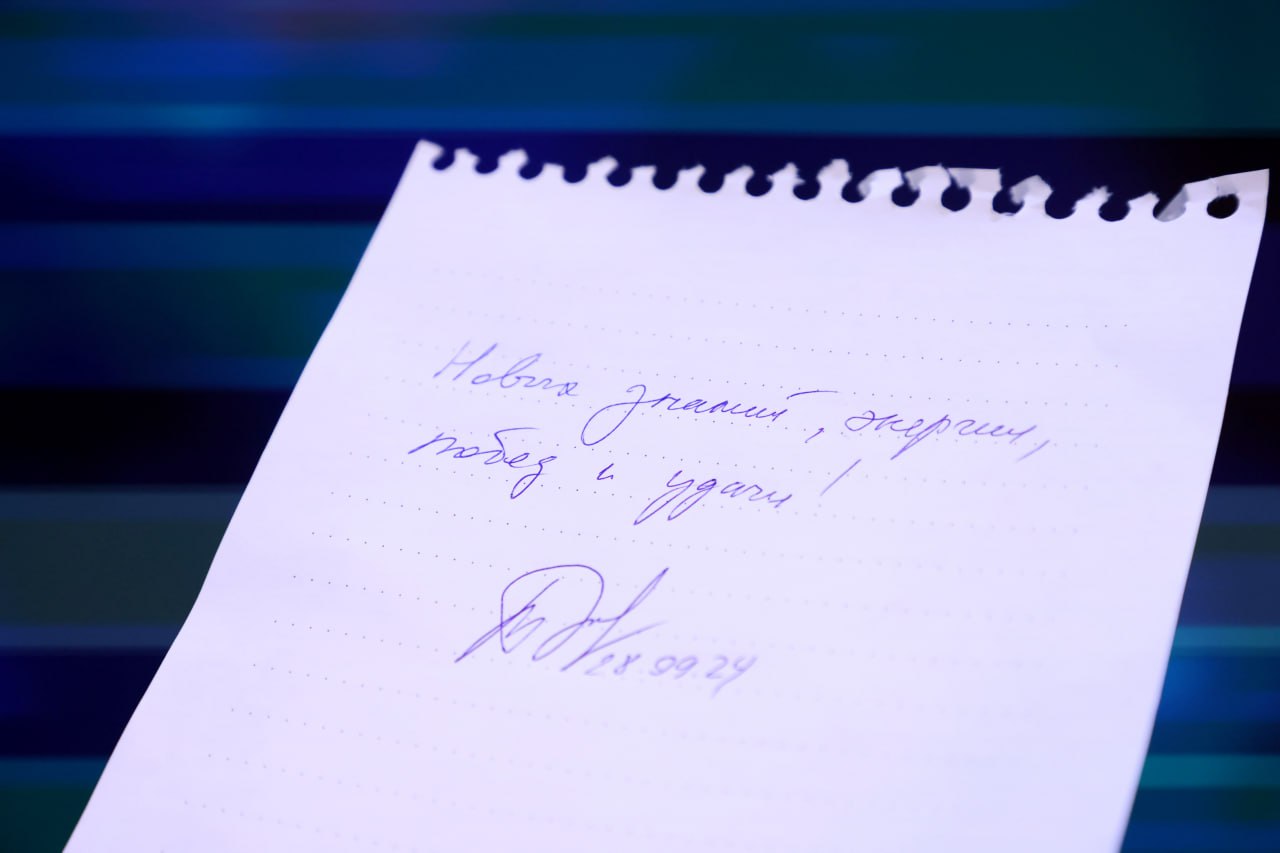 Новых знаний, энергии,
побед и удачи!
28.09.24